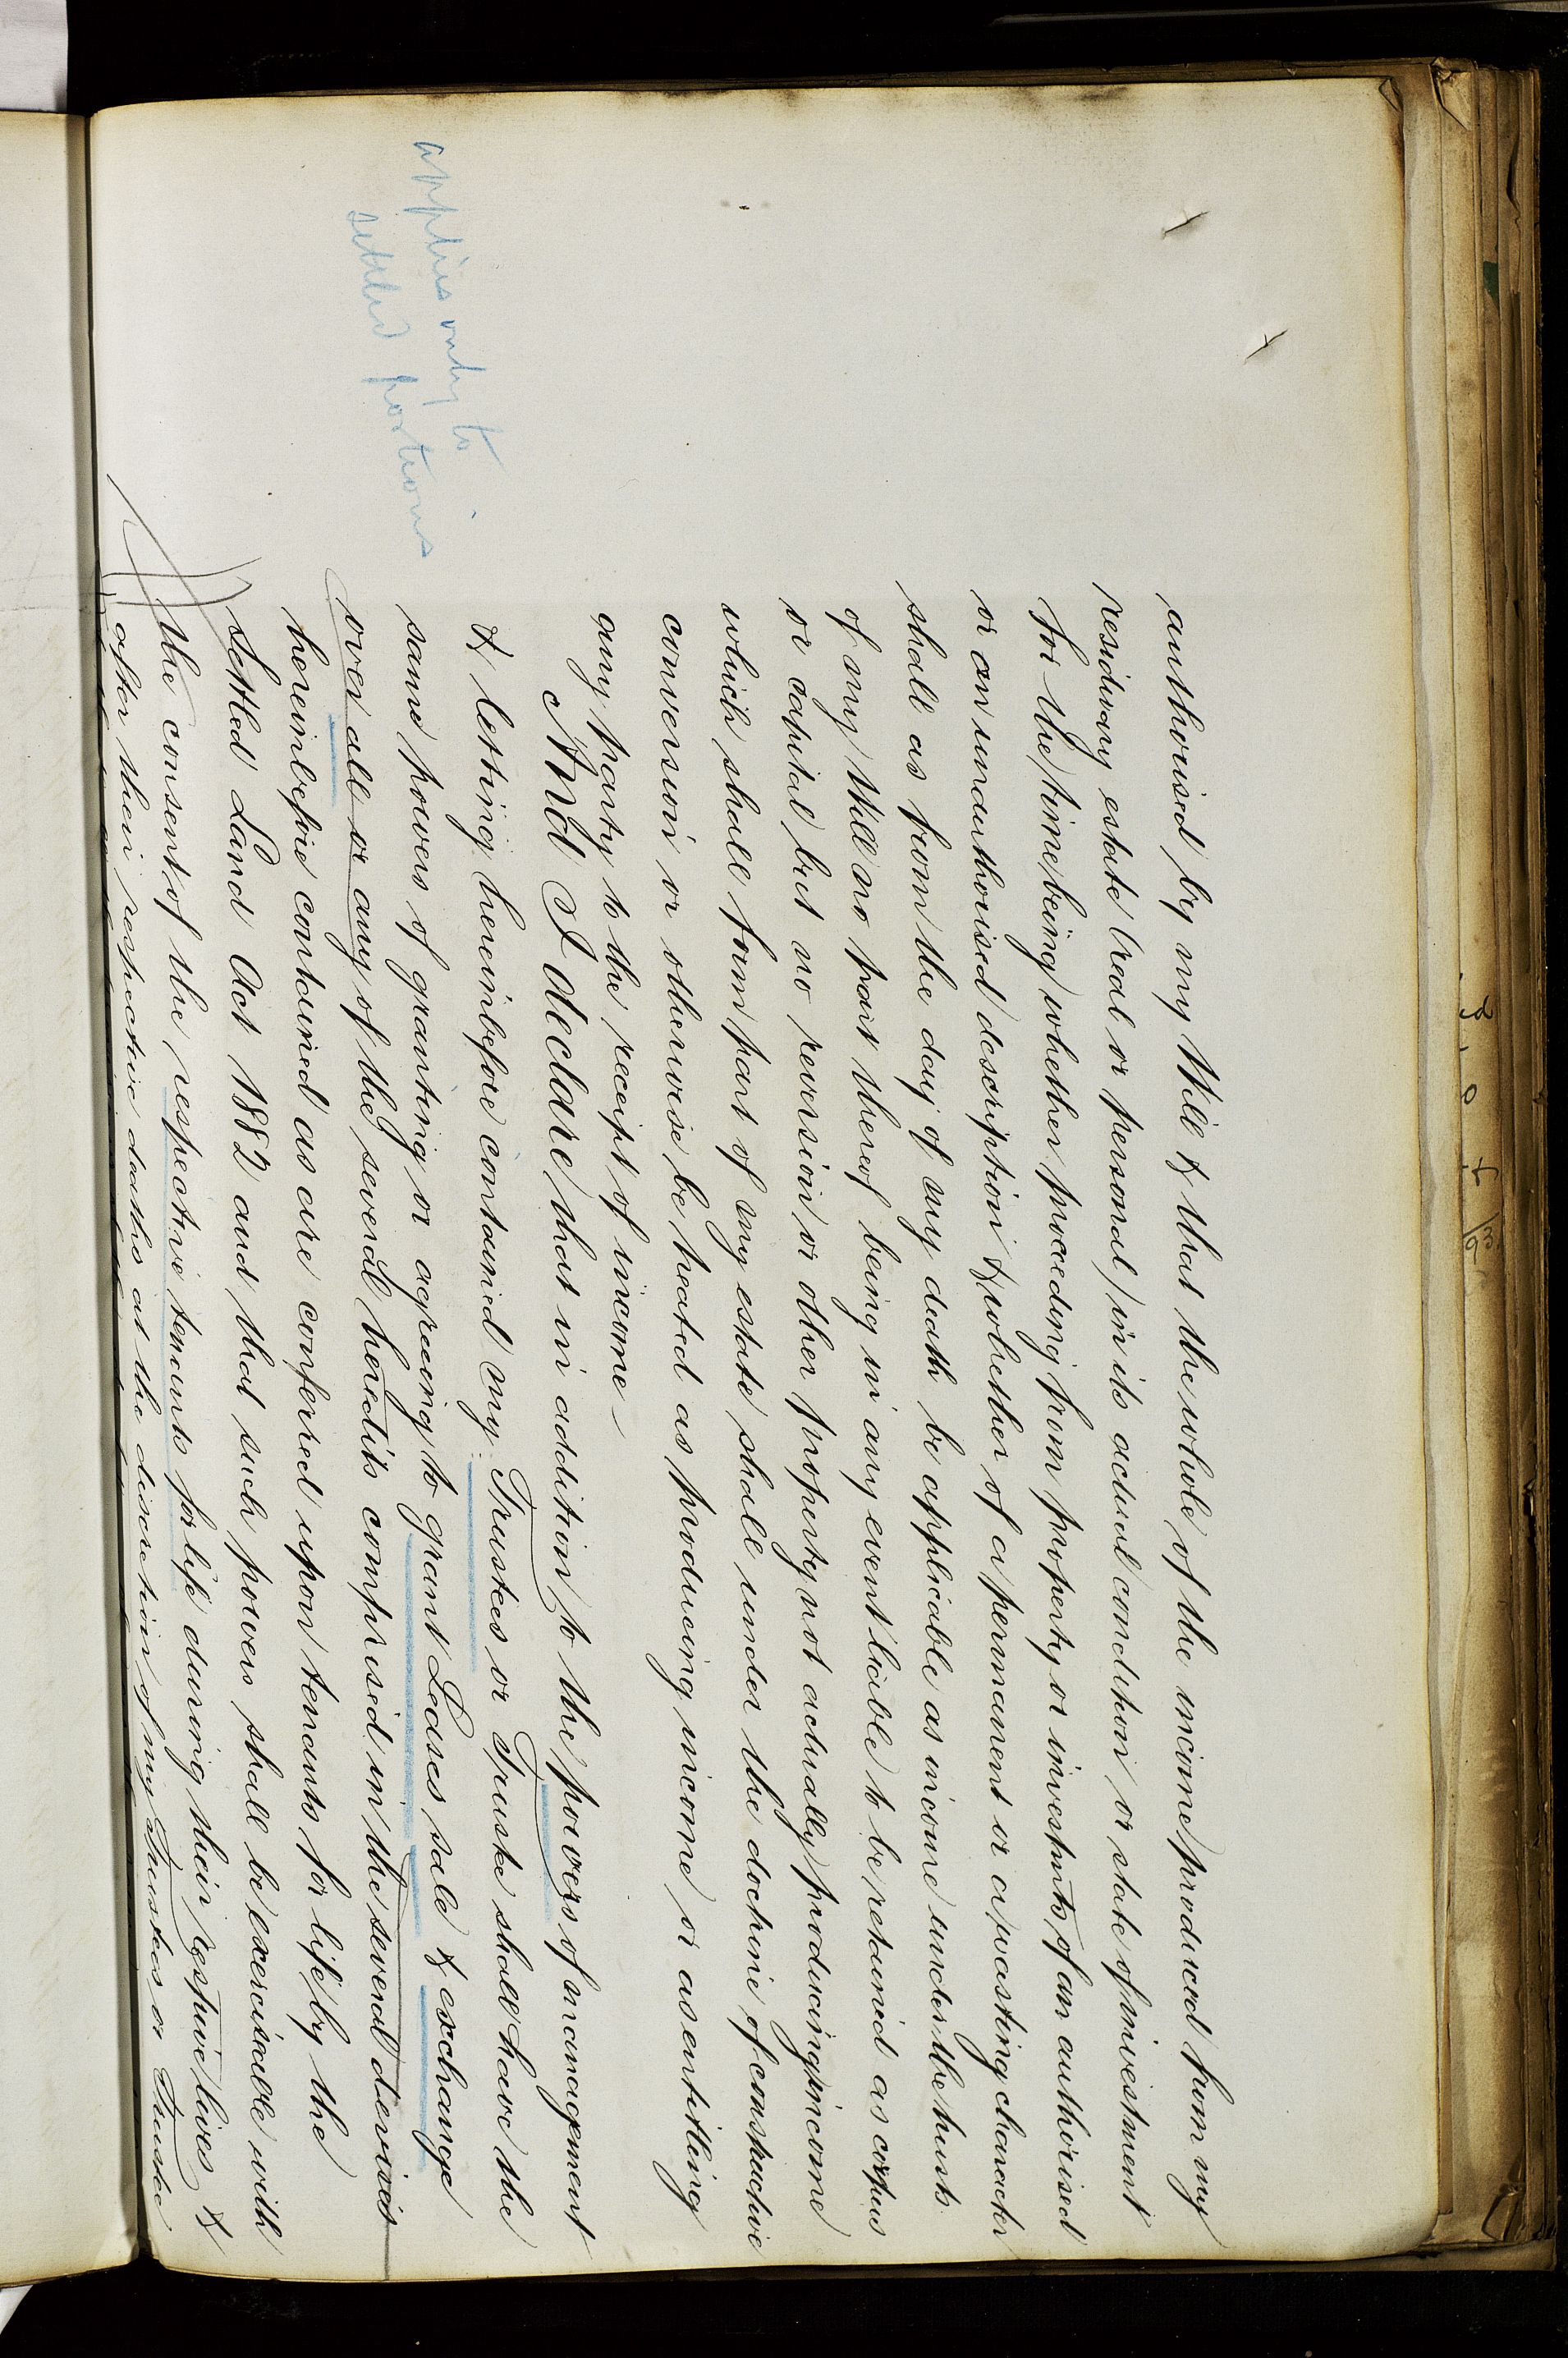 authorised by my Will & that the whole of the income produced from my
residuary estate (real or personal) in its actual condition or state of investment
for the time being whether proceeding from property or investmts of an authorised
or an unauthorised description & whether of a permanent or a wasting character
shall as from the day of my death be applicable as income under the trusts
of my Will no part thereof being in any event liable to be retained as corpus
or capital but no reversion or other property not actually producing income
which shall form part of my estate shall under the doctrine of constructive
conversion or otherwise be treated as producing income or as entitling
any party to the receipt of income
And I declare that in addition to the powers of management
& letting hereinbefore contained my Trustees or Trustee shall have the
same powers of granting or agreeing to grant Leases sale & exchange
over all or any of the several heredits comprised in the several devises
hereinbefore contained as are conferred upon tenants for life by the
Settled Land Act 1882 and that such powers shall be exercisable with
the consent of the respective tenants for life during their respive lives &
after their respective deaths at the discretion of my Trustees or Trustee
applies only to
settled portions